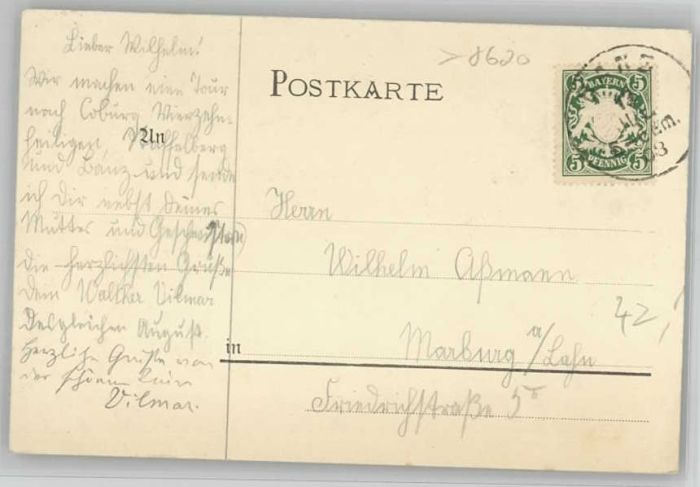 Lieber Wilhelm!
Wir machen eine Tour
nach Coburg Vierzehn-
heiligen, Staffelberg
und Banz und sende
ich Dir nebst Deiner
Mutter und Geschwistern
die herzlichsten Grüße
Dein Walther Vilmar
Desgleichen August.
Herzliche Grüße von
der schönen
Vilmar.
>8620
POSTKARTE
An
BAYERN
5 5
5 PFENNIG 5
Herrn
Wilhelm Aßmann
42,
in Marburg a/Lahn
Friedrichstraße 5